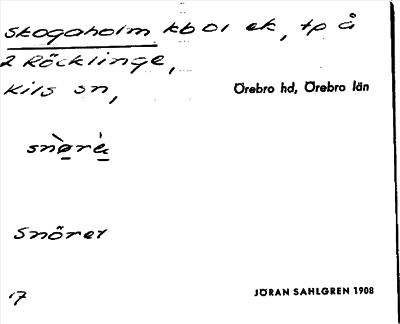 Skogaholm kb 01 ek, tp å
2 Röcklinge,
Kils sn,
Örebro hd, Örebro län
snø̀rè
Snöret
17
JÖRAN SAHLGREN 1908